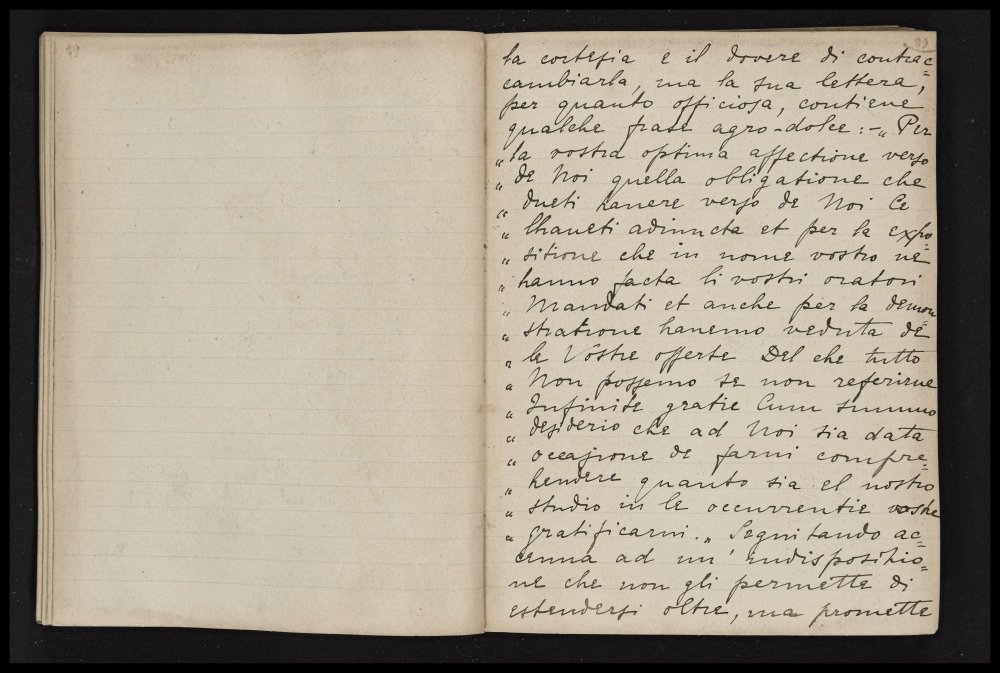 99
99
la cortesia e il dovere di contrac=
cambiarla, ma la sua lettera,
per quanto officiosa, contiene
qualche frase agro-dolce :-„ Per
„ la vostra optima affectione verso
„ de Noi quella obligatione che
„ dueti hauere verso de Noi Ce
„ lhaueti adiuncta et per la expo=
„ sitione che in nome vostro ne
„ hanno facta li vostri oratori
„ Mandati et anche per la demon
„ stratione hauemo veduta de=
„ le Vostre offerte Del che tutto
„ Non possemo se non referirne
„ Infinite gratie Cum summo
„ desiderio che ad Noi sia data
„ occasione de farui compre=
„ hendere quanto sia el nostro
„ studio in le occurrentie vostre
„ gratificarui.„ Seguitando ac=
cenna ad un' indisposizio=
ne che non gli permette di
estendersi oltre, ma promette